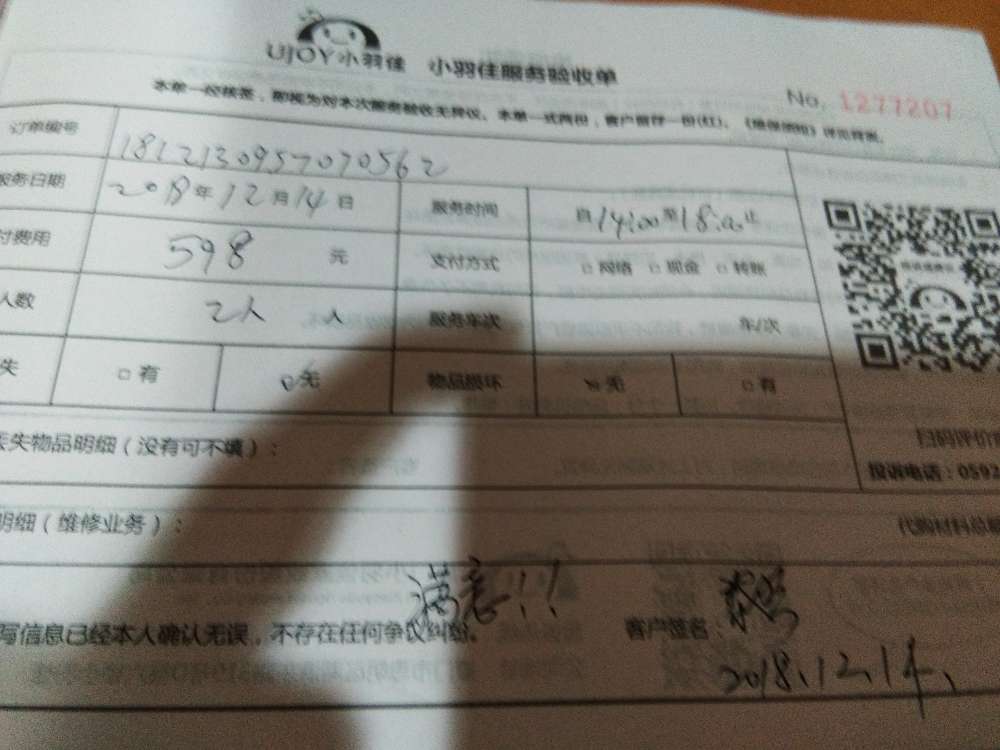 UJOY小羽佳 小羽佳服务验收单
No. 1277207
本单一经核签，即视为对本次服务验收无异议。本单一式两份，客户留存一份(红)。
订单编号 1812130957070562
服务日期 2018年12月14日 服务时间 自14:00至18:00止
付费用 598 元 支付方式 □网络 □现金 □转账
人数 2人 人 服务车次 车/次
失 □有 无 物品损坏 无 □有
丢失物品明细（没有可不填）：
扫码评价
投诉电话：0592
明细（维修业务）：
代购材料总
满意！！
写信息已经本人确认无误，不存在任何争议纠纷。 客户签名：
2018.12.14.